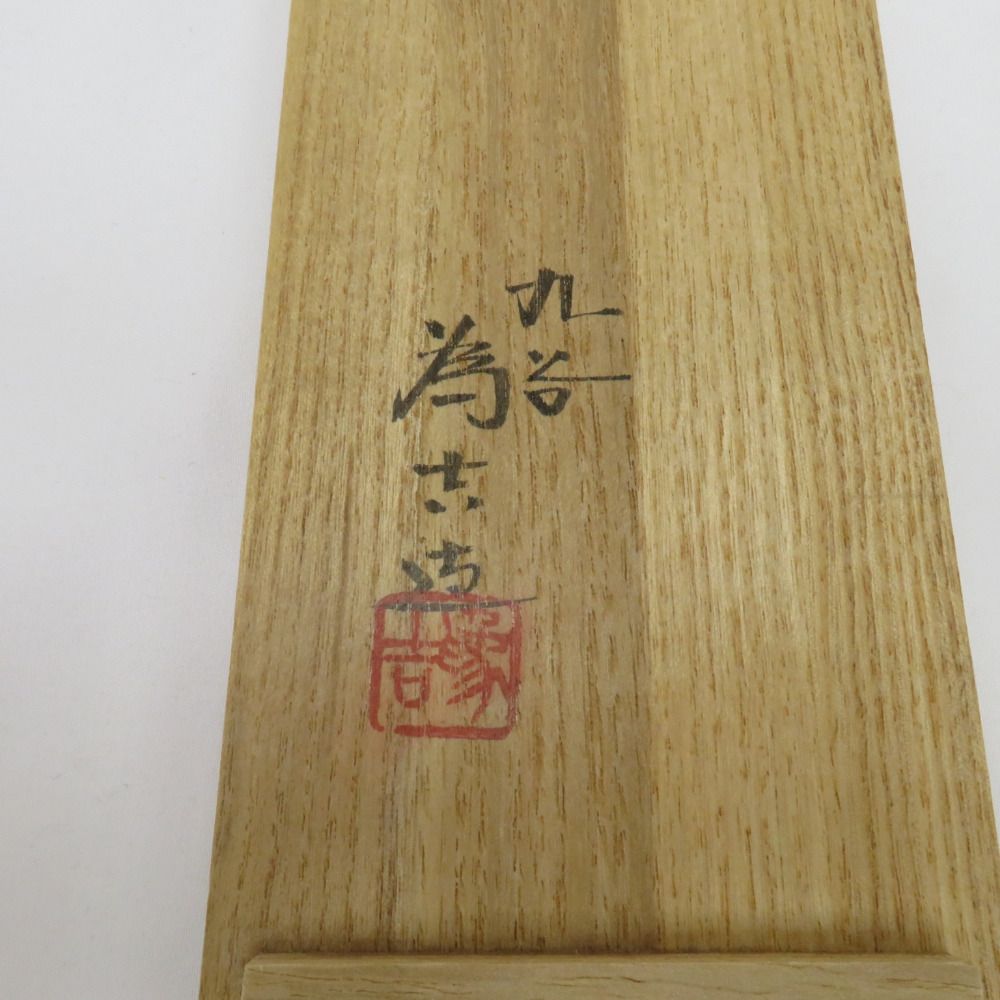 九谷
為吉造
為吉